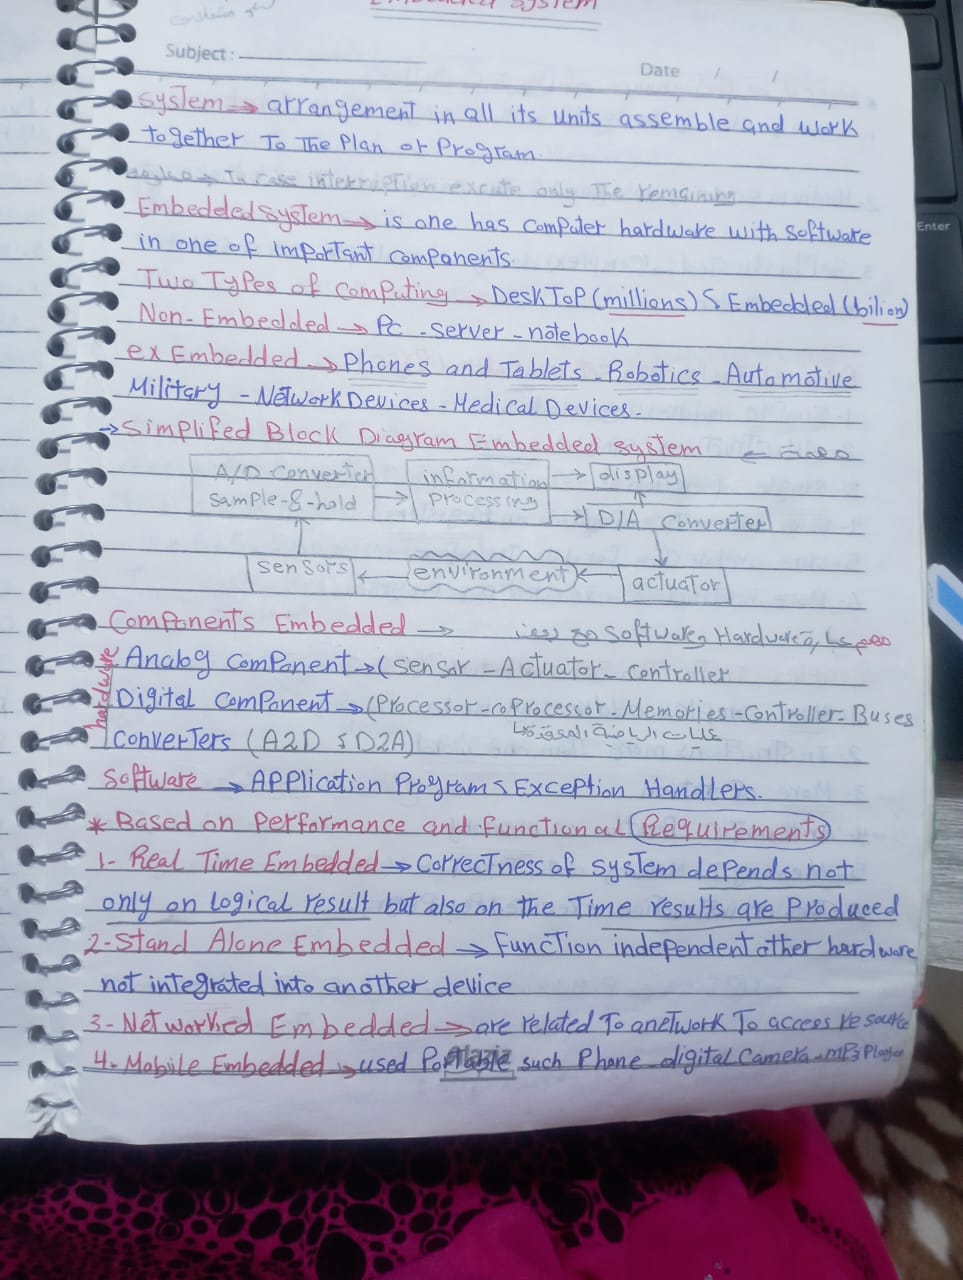 Embedded System
Subject :
Date / /
System → arrangement in all its units assemble and work
together To The Plan or Program.
In case interription excute only The remaining
Embedded system → is one has computer hardware with software
in one of important components
Two Types of computing → DeskToP (millions) & Embedded (bilion)
Non-Embedded → Pc - server - notebook
ex Embedded → Phones and Tablets - Robotics - Automotive
Military - Network Devices - Medical Devices.
→ Simplifed Block Diagram Embedded system
A/D Converter
sample-&-hold
information
processing
display
D/A Converter
sensors
environment
actuator
Components Embedded → Software, Hardware
hardware
Analog component → (sensor - Actuator - controller
Digital component → (Processor - coprocessor - Memories - Controller - Buses
Converters (A2D & D2A)
Software → Application Program & Exception Handlers.
* Based on Performance and functional Requirements
1- Real Time Embedded → correctness of system depends not
only on logical result but also on the Time results are Produced
2- Stand Alone Embedded → Function independent other hardware
not integrated into another device
3- Networked Embedded → are related To anetwork To access resource
4- Mobile Embedded → used Portable such Phone - digital Camera - mP3 Player